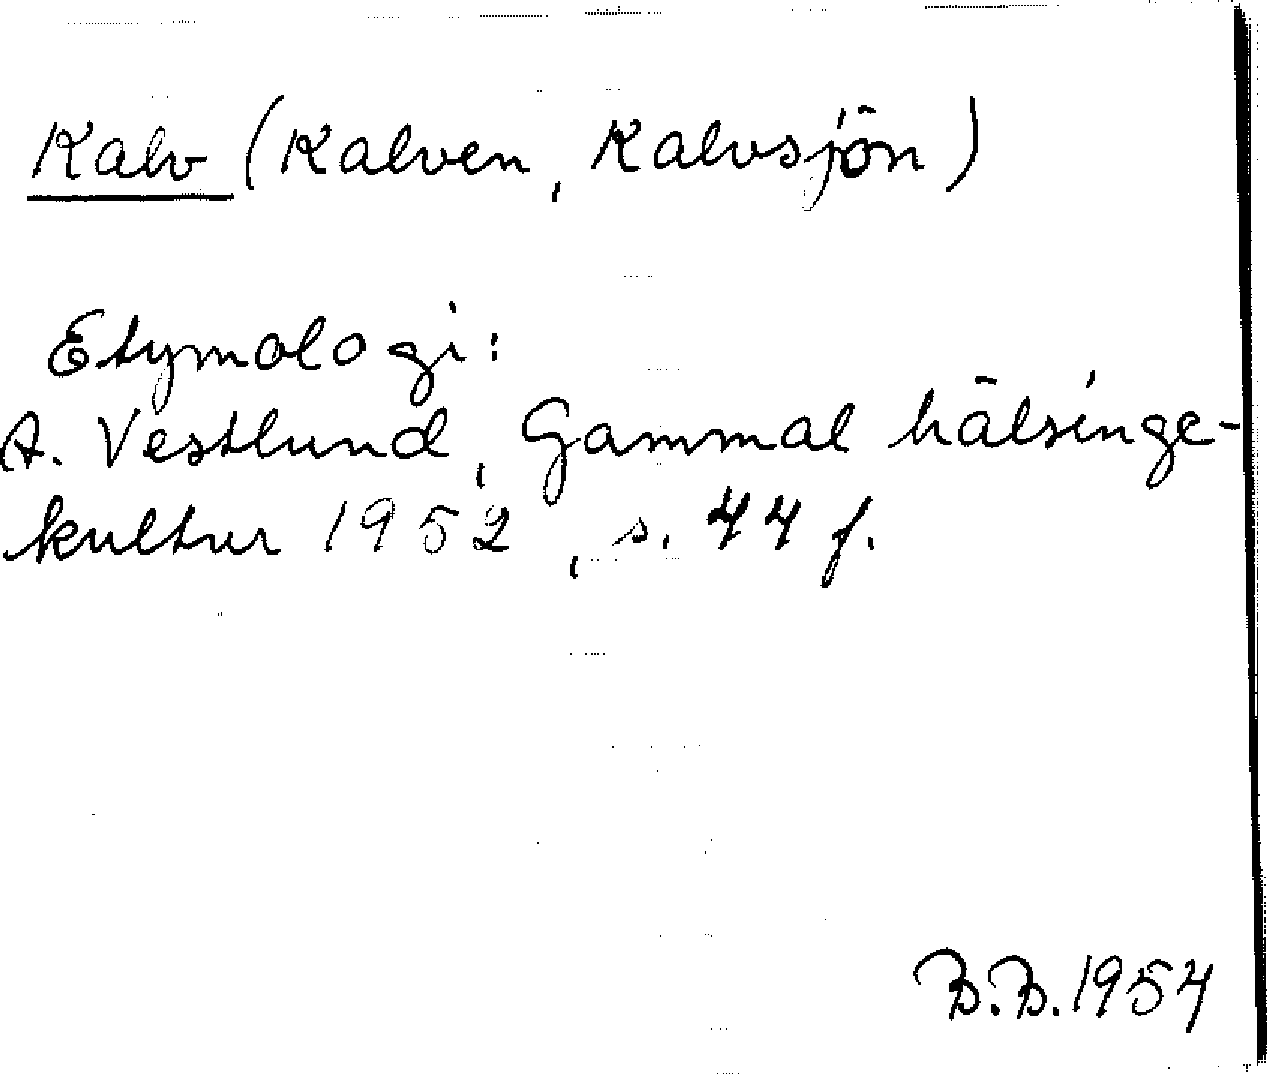 Kalv (Kalven, Kalvsjön)
Etymologi:
A. Vestlund, Gammal hälsinge-
kultur 1952, s. 44 f.
B.B. 1954